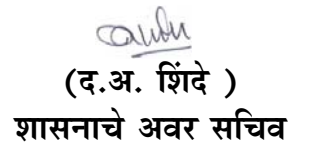 (द.अ. शिंदे )
शासनाचे अवर सचिव